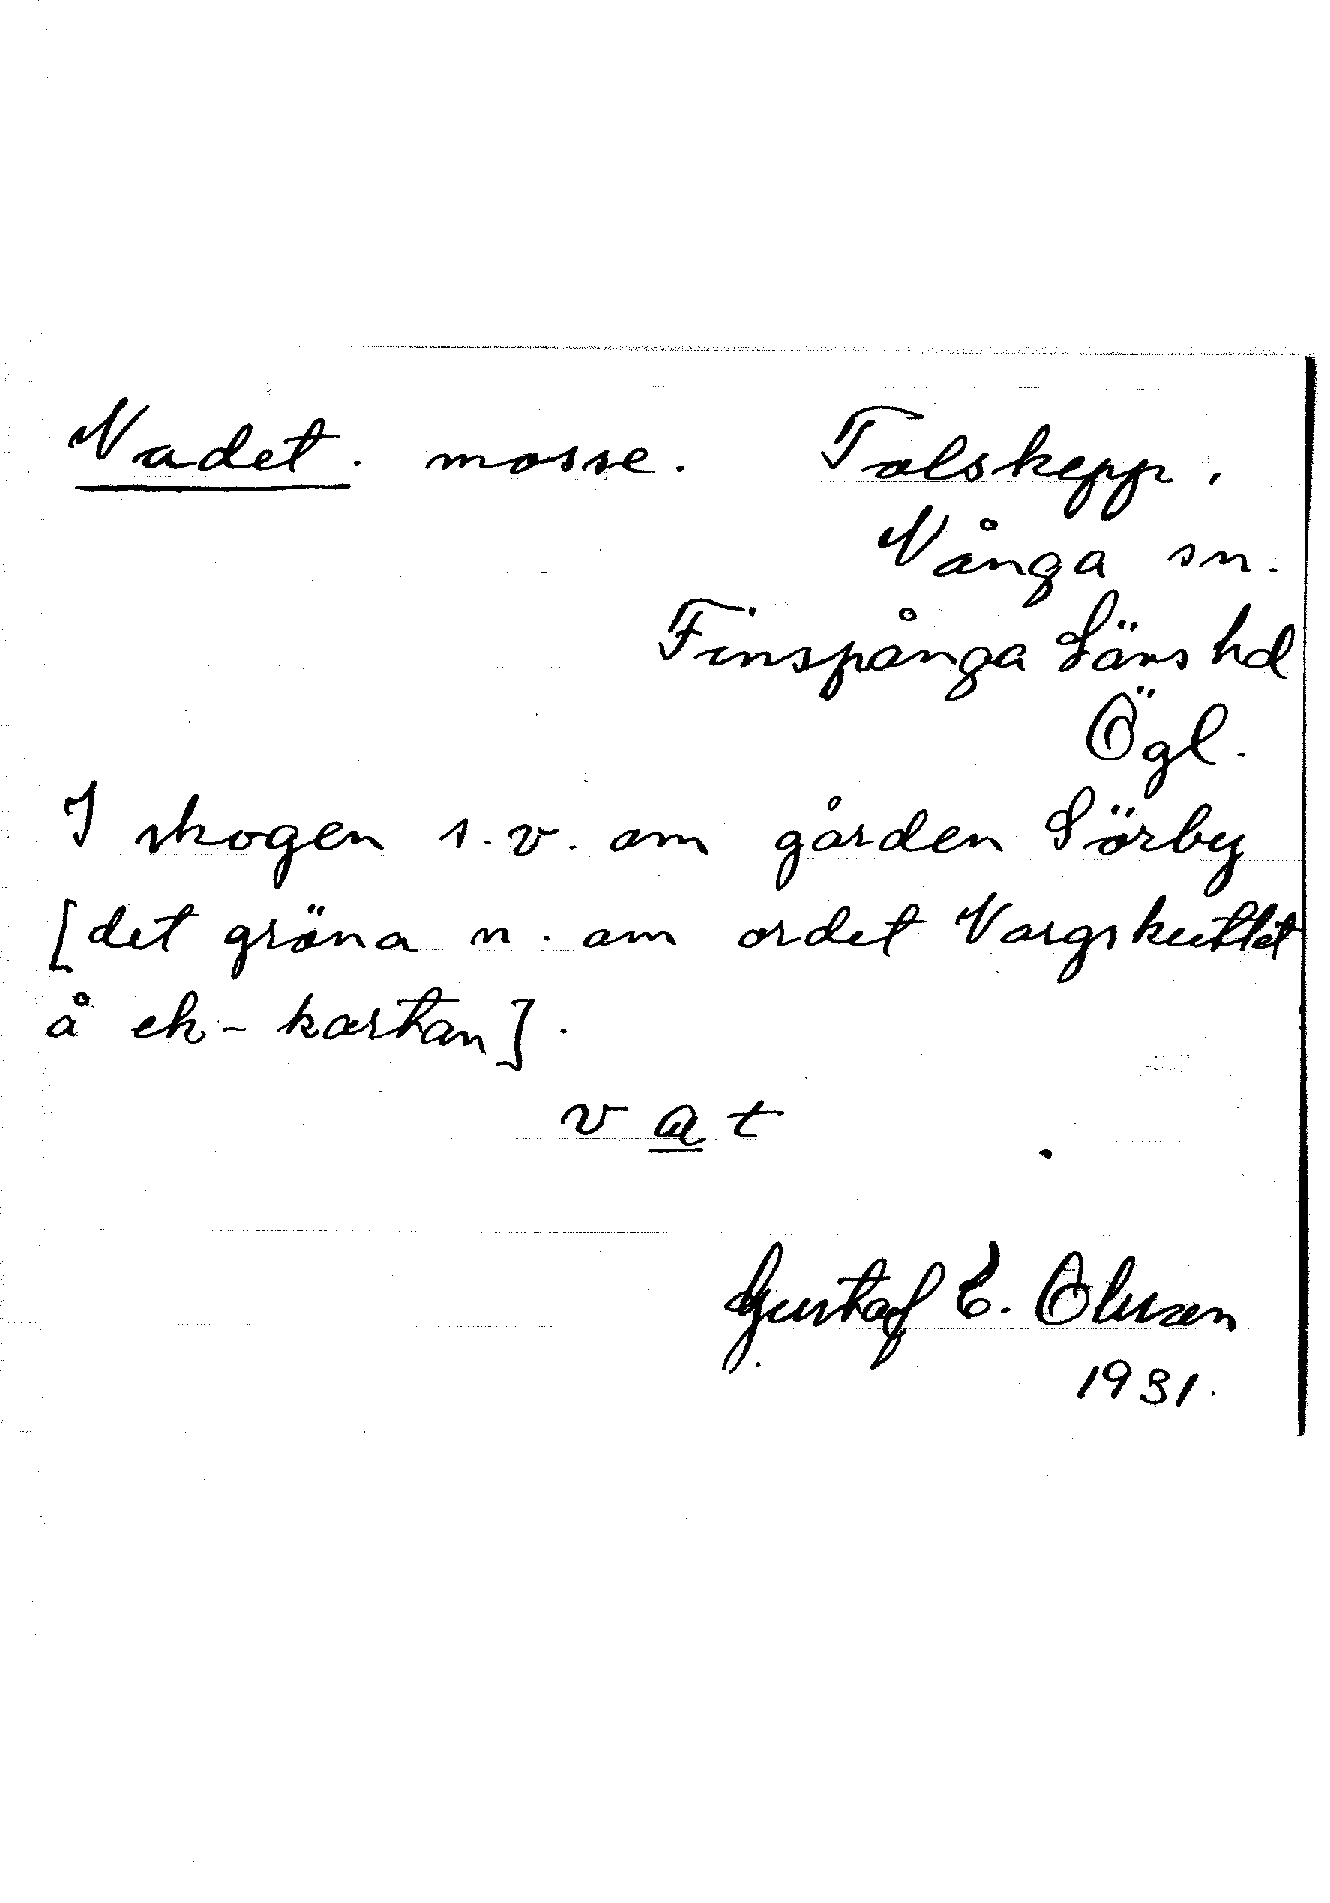 Vadet. mosse. Tolskepp.
Vånga sn.
Finspånga Läns hd
Ögl.
I skogen s.v. om gården Sörby
[det gröna n. om ordet Vargskuttet
å ek-kartan].
v a t
Gustaf E. Olsson
1931.